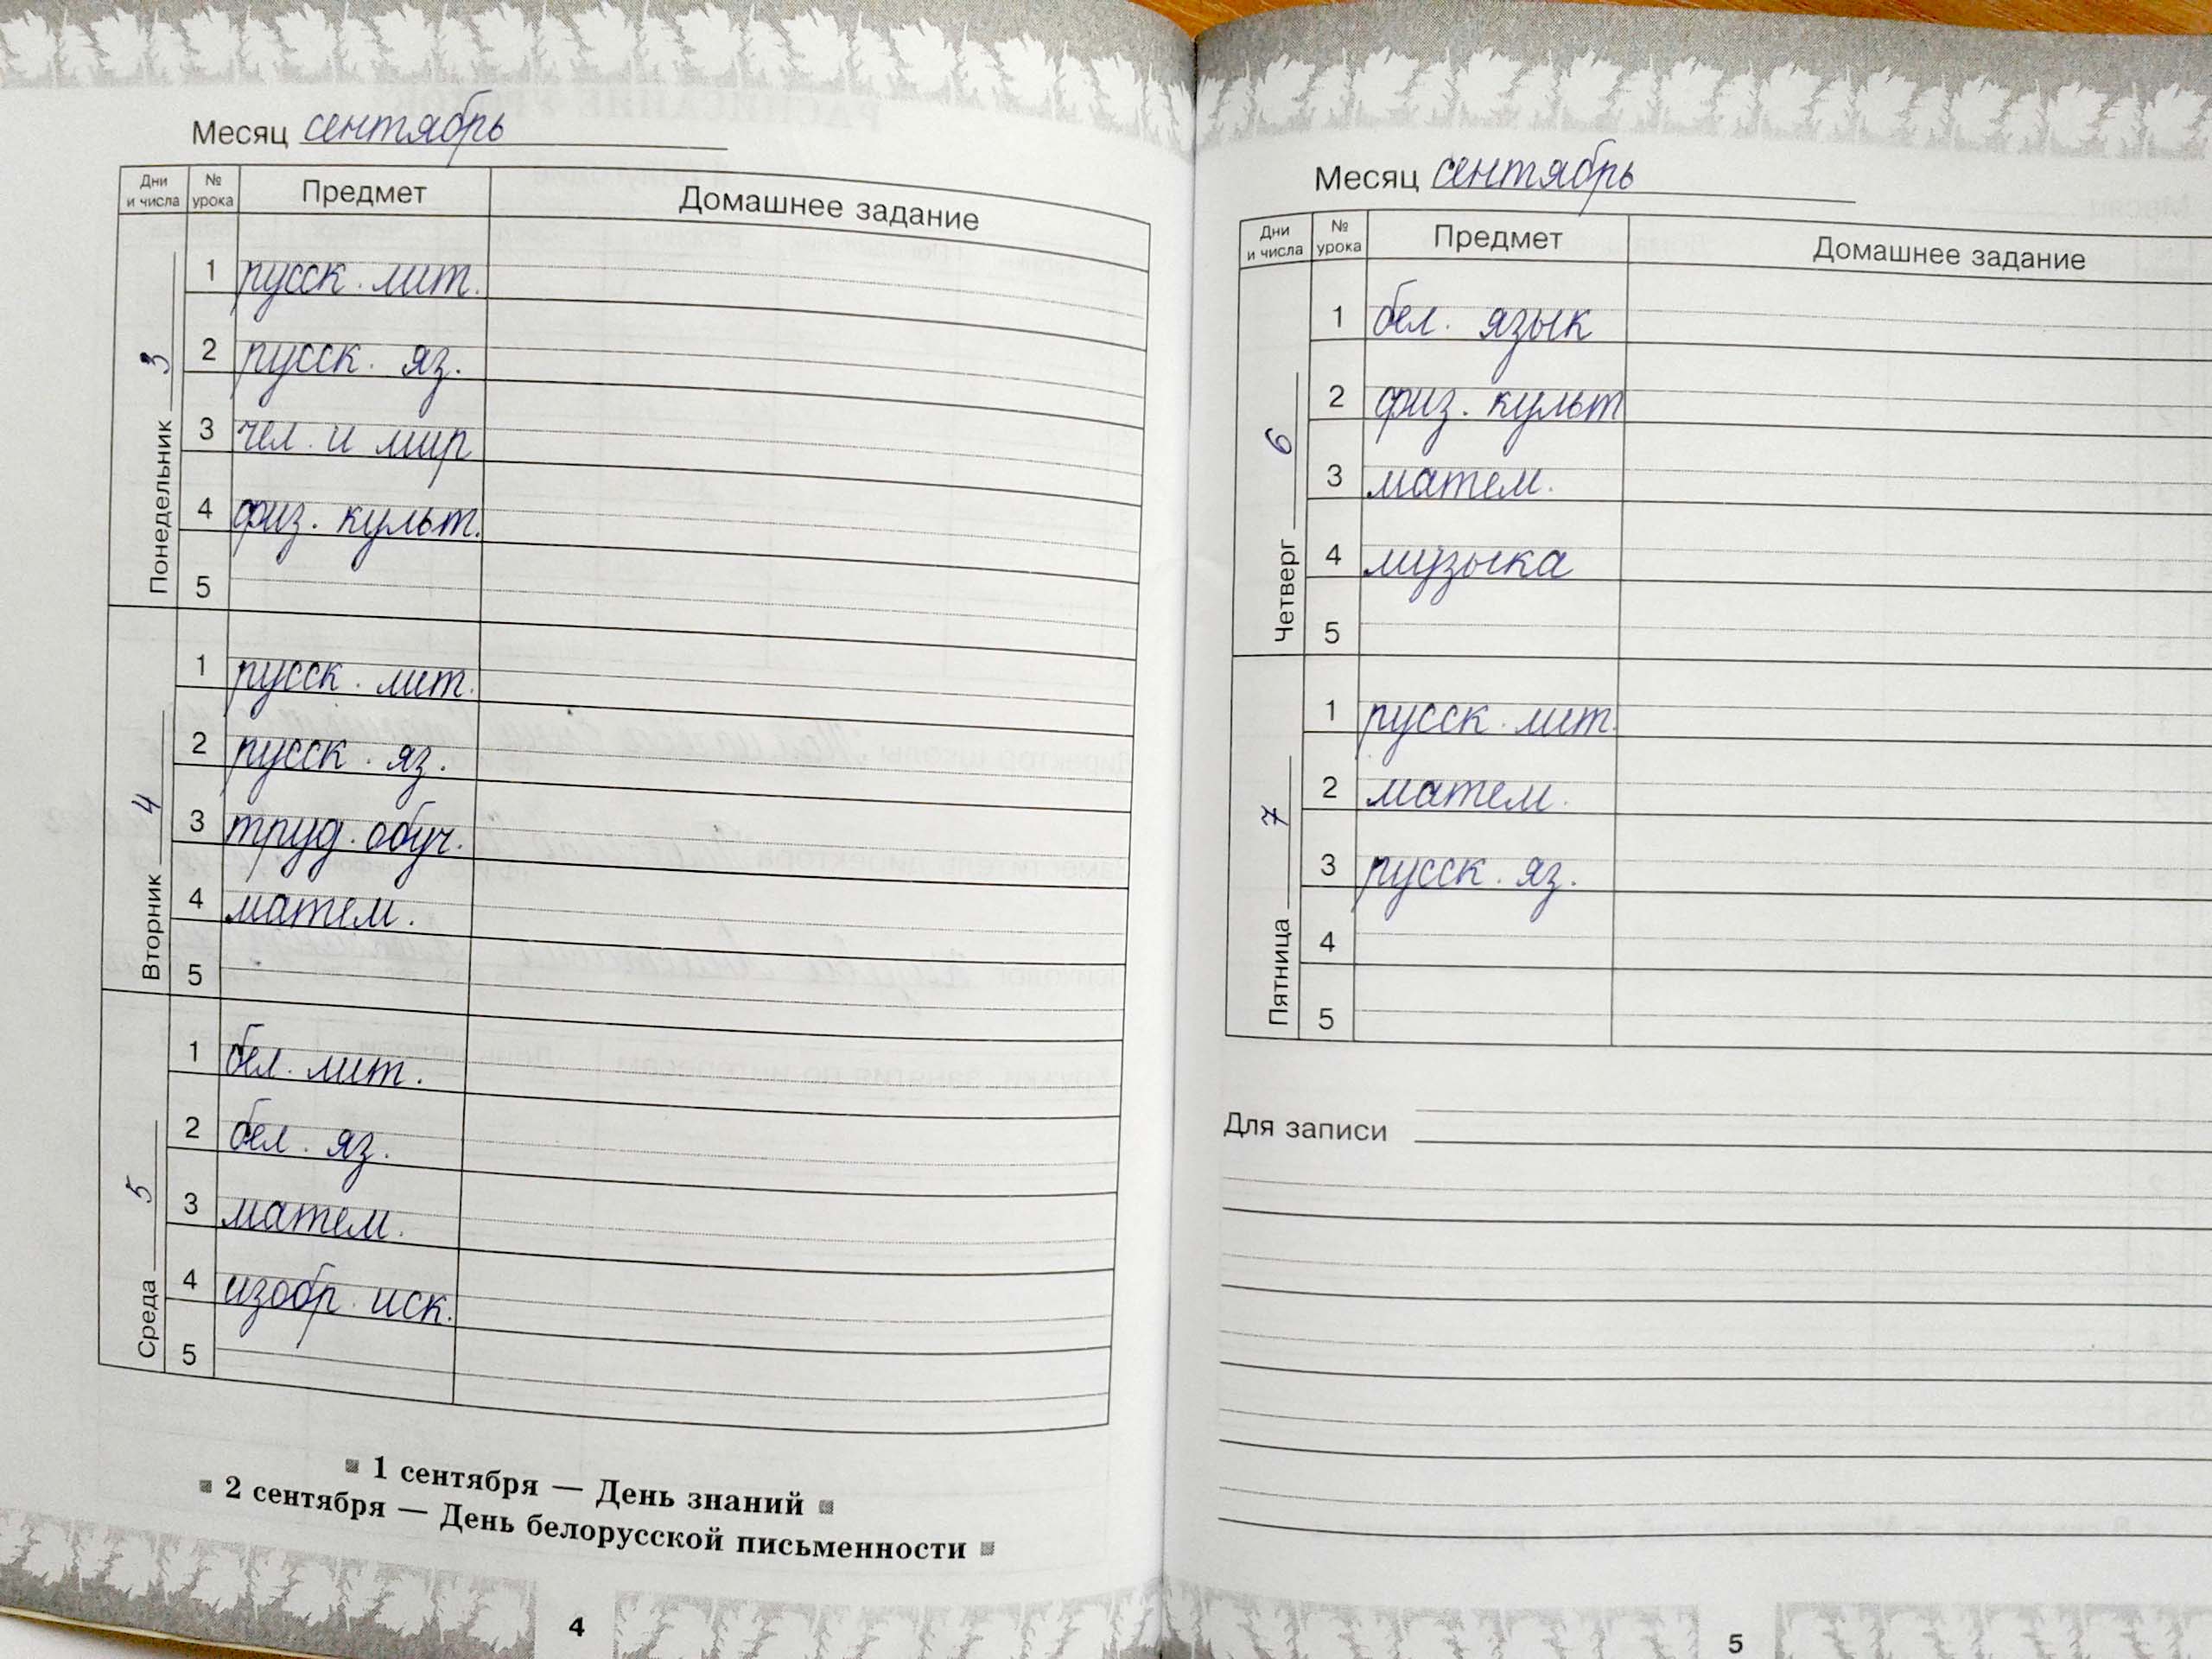 Месяц сентябрь
Дни и числа № урока Предмет Домашнее задание
Понедельник 3
1 русск. лит.
2 русск. яз.
3 чел. и мир
4 физ. культ.
5
Вторник 4
1 русск. лит.
2 русск. яз.
3 труд. обуч.
4 матем.
5
Среда 5
1 бел. лит.
2 бел. яз.
3 матем.
4 изобр. иск.
5
1 сентября — День знаний
2 сентября — День белорусской письменности
4
Месяц сентябрь
Дни и числа № урока Предмет Домашнее задание
Четверг 6
1 бел. язык
2 физ. культ
3 матем.
4 музыка
5
Пятница 7
1 русск. лит.
2 матем.
3 русск. яз.
4
5
Для записи
5